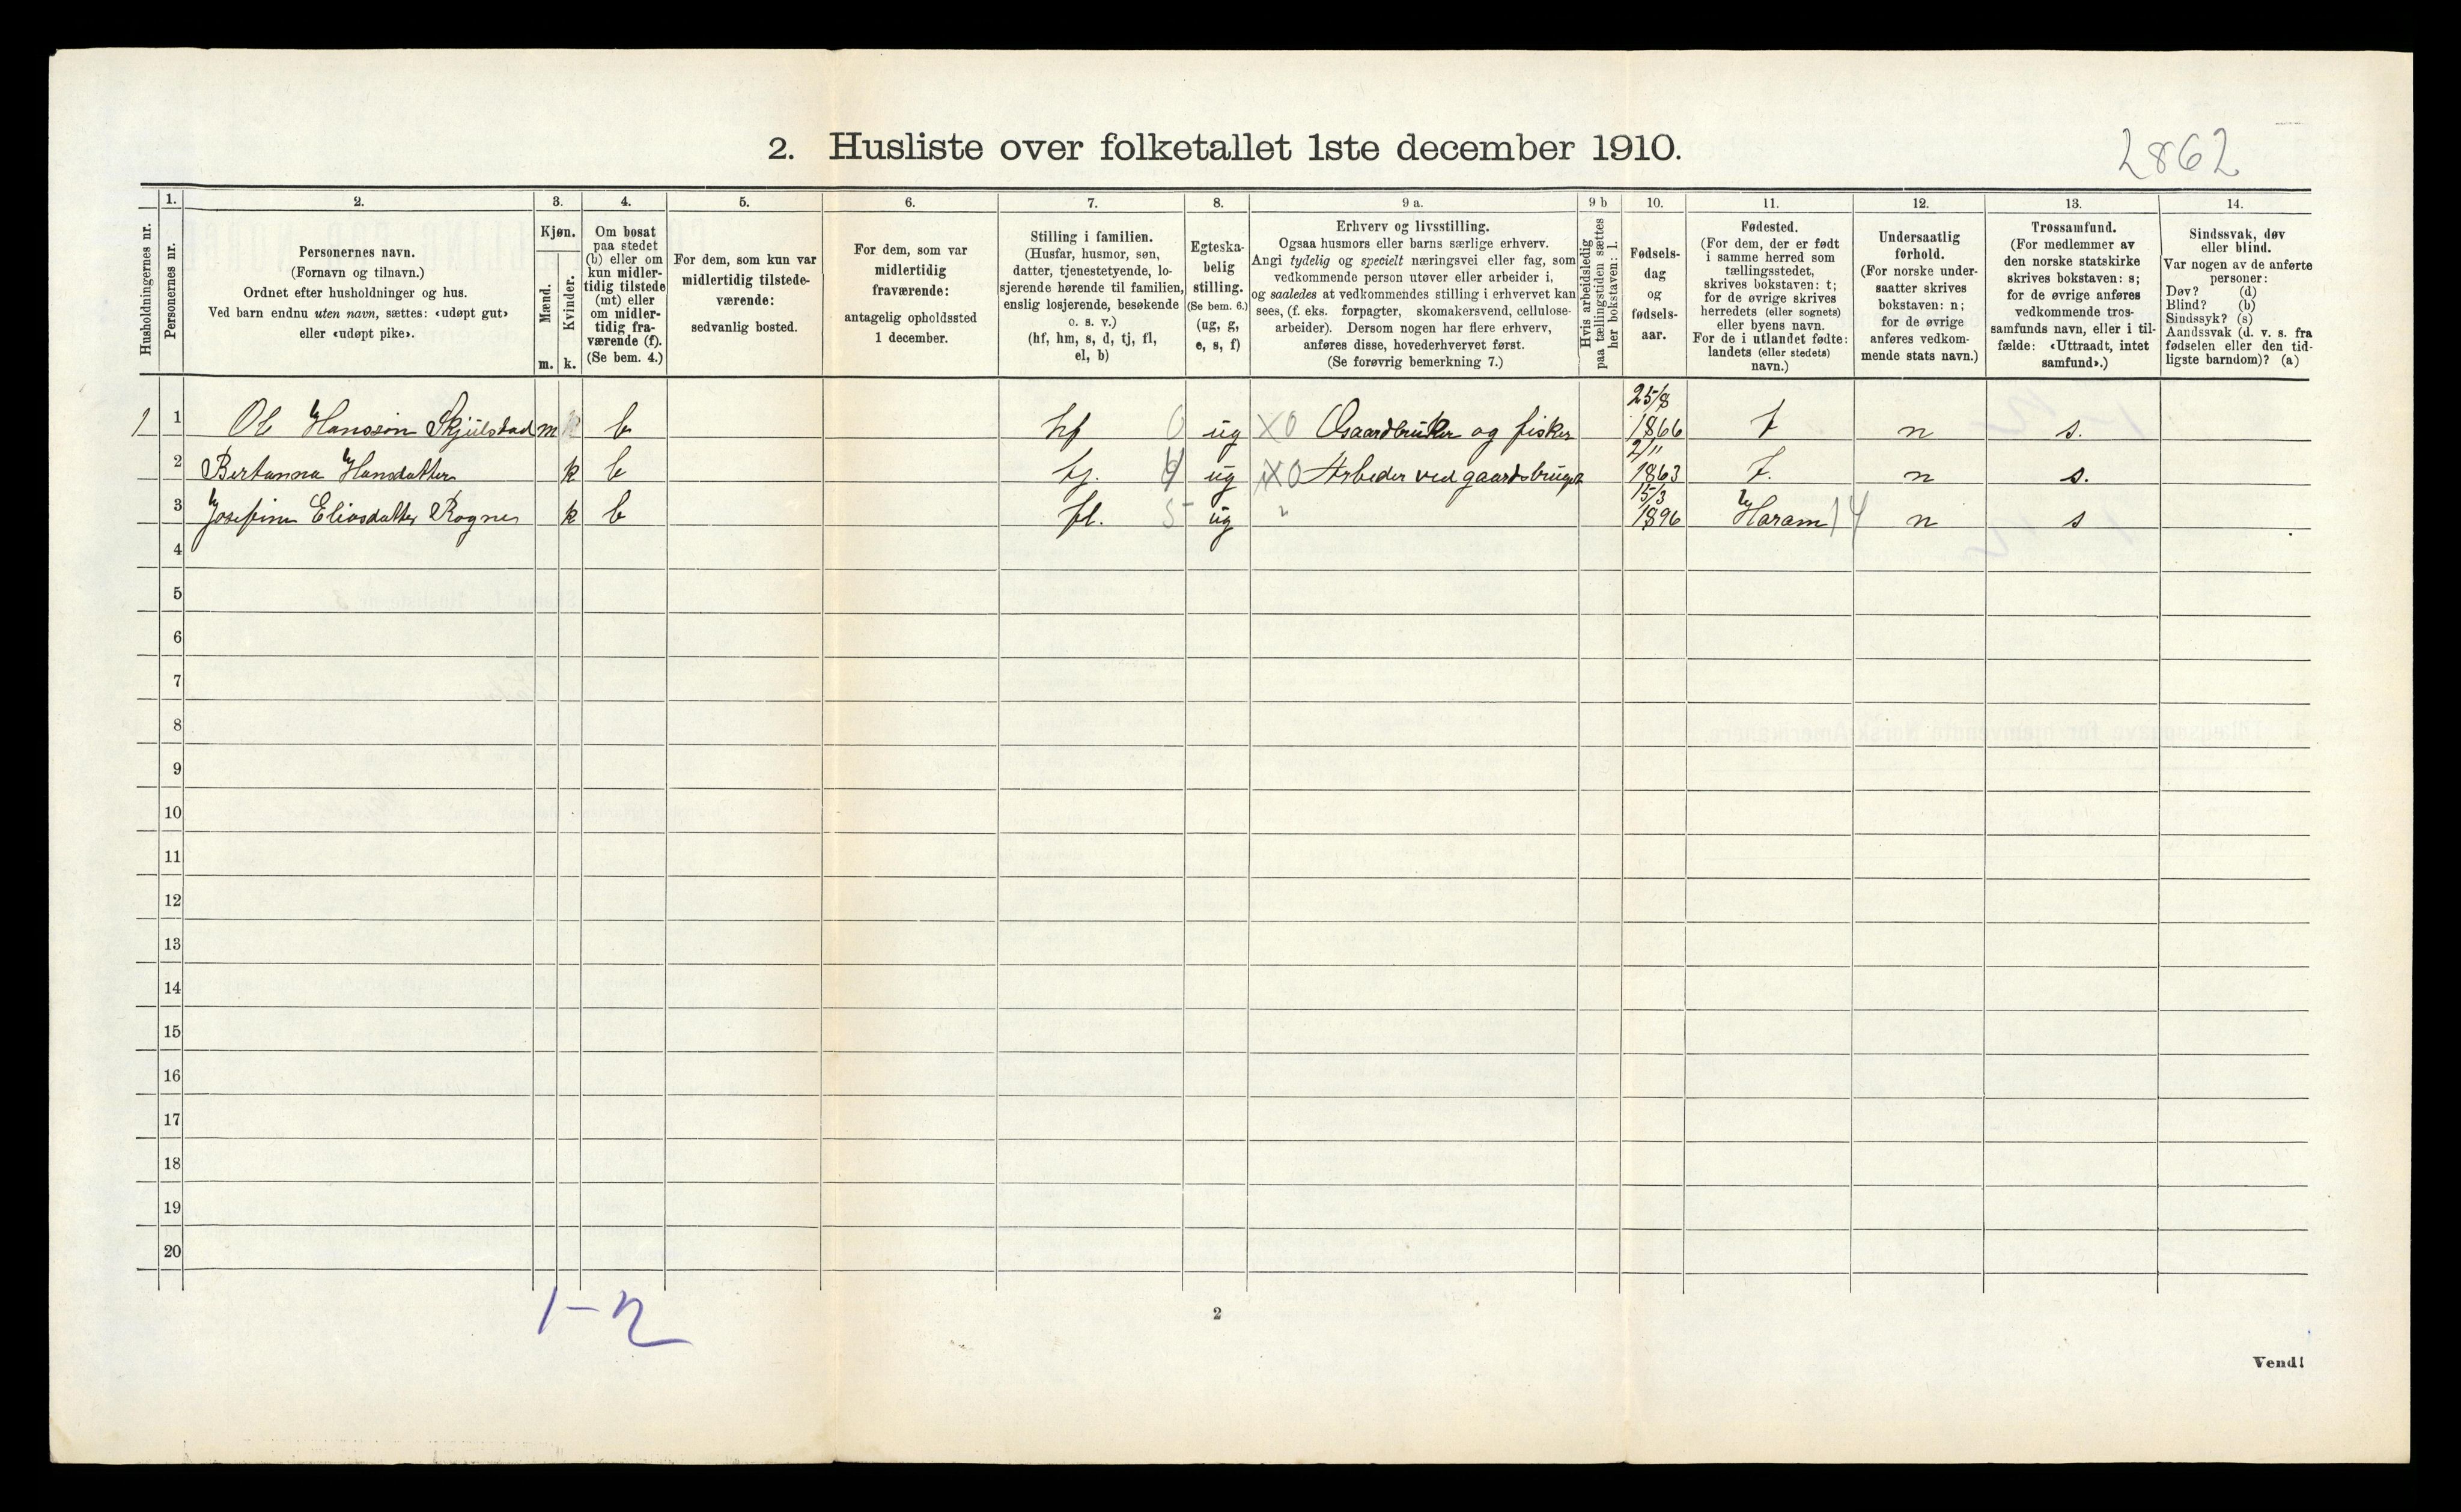 2862
2. Husliste over folketallet 1ste december 1910.
Husholdningernes nr.
1.
Personernes nr.
2.
Personernes navn.
(Fornavn og tilnavn.)
Ordnet efter husholdninger og hus.
Ved barn endnu uten navn, sættes: «udøpt gut»
eller «udøpt pike».
3.
Kjøn.
Mænd.
Kvinder.
m. k.
4.
Om bosat
paa stedet
(b) eller om
kun midler-
tidig tilstede
(mt) eller
om midler-
tidig fra-
værende (f).
(Se bem. 4.)
5.
For dem, som kun var
midlertidig tilstede-
værende:
sedvanlig bosted.
6.
For dem, som var
midlertidig
fraværende:
antagelig opholdssted
1 december.
7.
Stilling i familien.
(Husfar, husmor, søn,
datter, tjenestetyende, lo-
sjerende hørende til familien,
enslig losjerende, besøkende
o. s. v.)
(hf, hm, s, d, tj, fl,
el, b)
8.
Egteska-
belig
stilling.
(Se bem. 6.)
(ug, g,
e, s, f)
9 a.
Erhverv og livsstilling.
Ogsaa husmors eller barns særlige erhverv.
Angi tydelig og specielt næringsvei eller fag, som
vedkommende person utøver eller arbeider i,
og saaledes at vedkommendes stilling i erhvervet kan
sees, (f. eks. forpagter, skomakersvend, cellulose-
arbeider). Dersom nogen har flere erhverv,
anføres disse, hovederhvervet først.
(Se forøvrig bemerkning 7.)
9 b
Hvis arbeidsledig
paa tællingstiden sættes
her bokstaven: l.
10.
Fødsels-
dag
og
fødsels-
aar.
11.
Fødested.
(For dem, der er født
i samme herred som
tællingsstedet,
skrives bokstaven: t;
for de øvrige skrives
herredets (eller sognets)
eller byens navn.
For de i utlandet fødte:
landets (eller stedets)
navn.)
12.
Undersaatlig
forhold.
(For norske under-
saatter skrives
bokstaven: n;
for de øvrige
anføres vedkom-
mende stats navn.)
13.
Trossamfund.
(For medlemmer av
den norske statskirke
skrives bokstaven: s;
for de øvrige anføres
vedkommende tros-
samfunds navn, eller i til-
fælde: «Uttraadt, intet
samfund».)
14.
Sindssvak, døv
eller blind.
Var nogen av de anførte
personer:
Døv? (d)
Blind? (b)
Sindssyk? (s)
Aandssvak (d. v. s. fra
fødselen eller den tid-
ligste barndom)? (a)
1 1 Ole Hanssøn Skjülstad m b hf 0 ug X0 Gaardbruker og fisker 25/8 1866 t n s.
2 Bertanna Hansdatter k b tj. ug X0 Arbeder ved gaardsbruget 2/11 1863 t. n s.
3 Josefine Eliasdatter Rogne k b fl. 5 ug " 15/3 1896 Haram 14 n s
4
5
6
7
8
9
10
11
12
13
14
15
16
17
18
19
20
1-2
2
Vend!